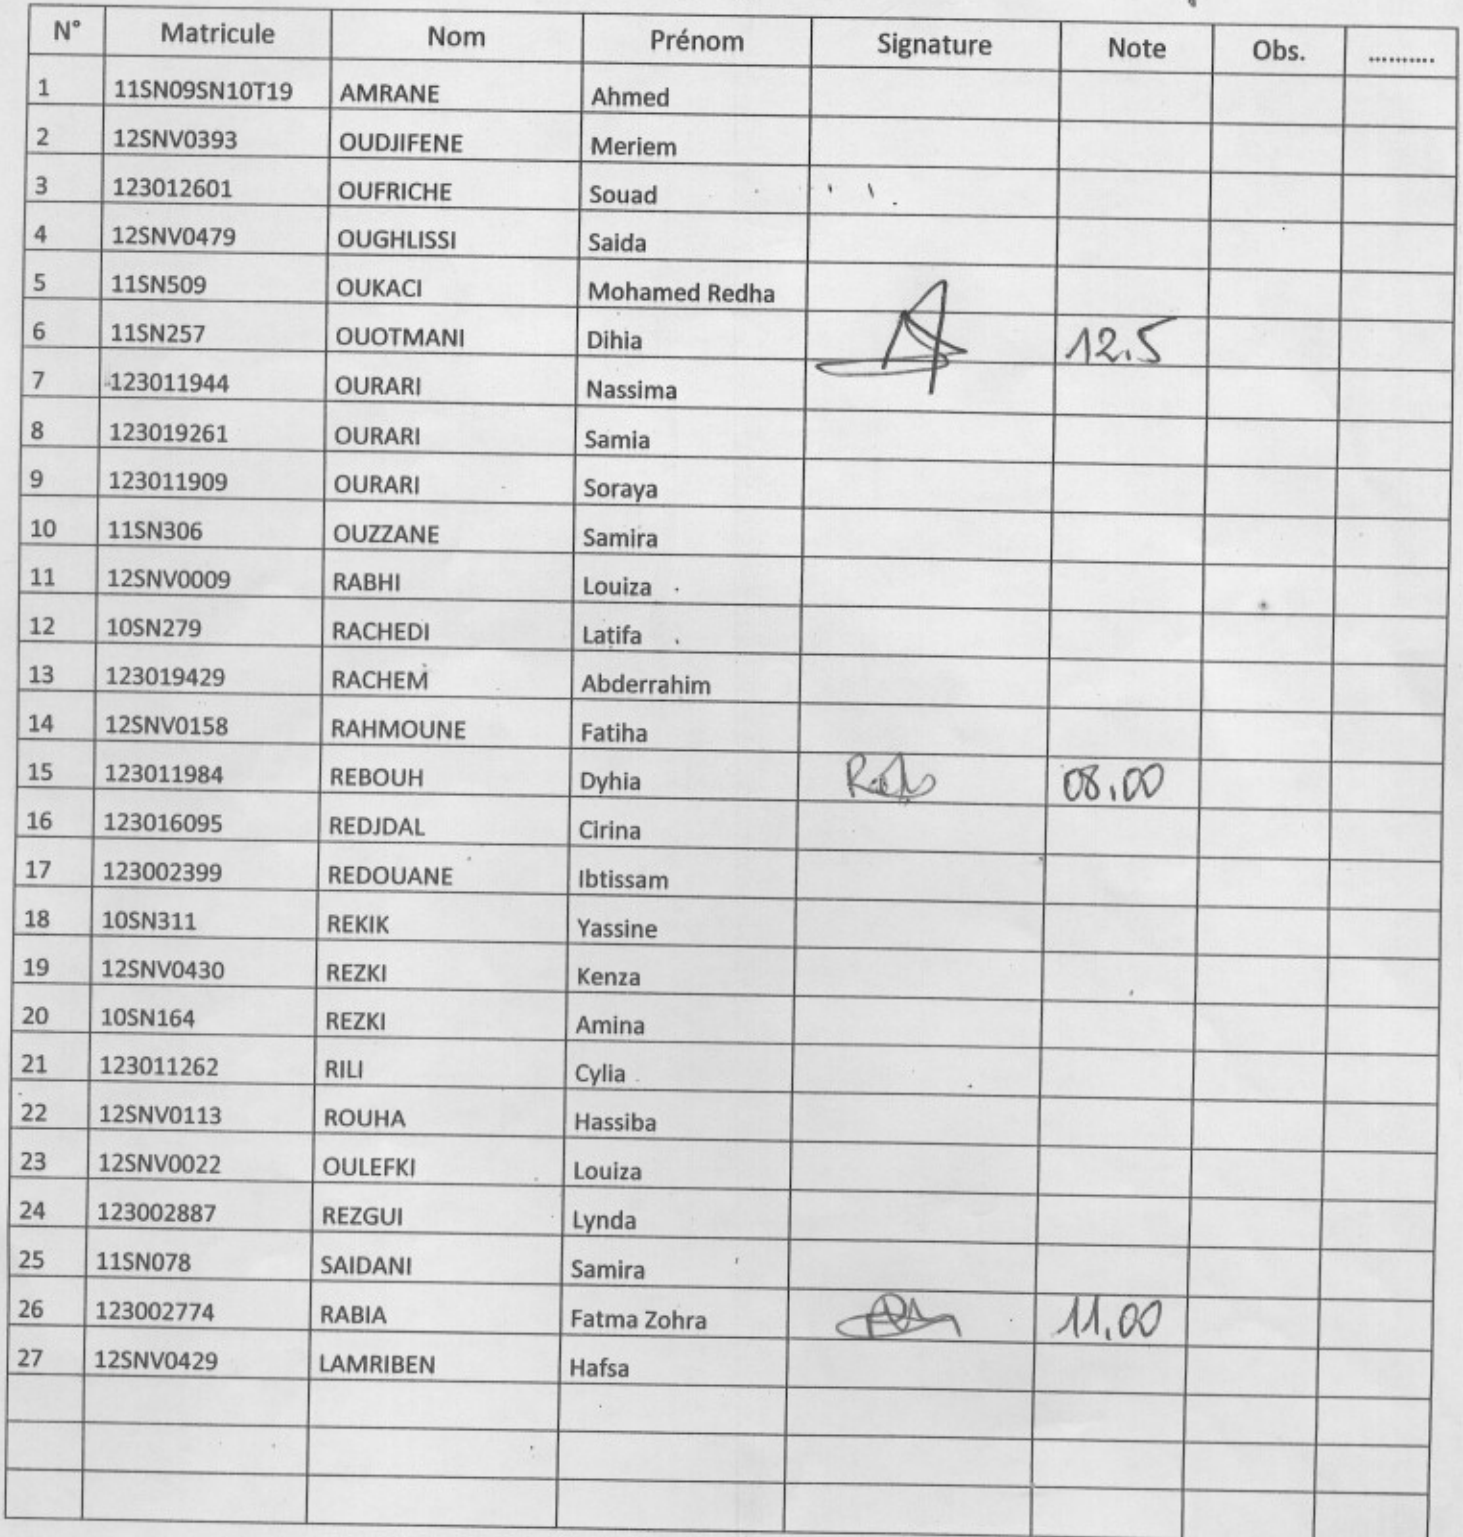 N° Matricule Nom Prénom Signature Note Obs. ..........
1 11SN09SN10T19 AMRANE Ahmed
2 12SNV0393 OUDJIFENE Meriem
3 123012601 OUFRICHE Souad
4 12SNV0479 OUGHLISSI Saida
5 11SN509 OUKACI Mohamed Redha
6 11SN257 OUOTMANI Dihia 12.5
7 123011944 OURARI Nassima
8 123019261 OURARI Samia
9 123011909 OURARI Soraya
10 11SN306 OUZZANE Samira
11 12SNV0009 RABHI Louiza
12 10SN279 RACHEDI Latifa
13 123019429 RACHEM Abderrahim
14 12SNV0158 RAHMOUNE Fatiha
15 123011984 REBOUH Dyhia 08,00
16 123016095 REDJDAL Cirina
17 123002399 REDOUANE Ibtissam
18 10SN311 REKIK Yassine
19 12SNV0430 REZKI Kenza
20 10SN164 REZKI Amina
21 123011262 RILI Cylia
22 12SNV0113 ROUHA Hassiba
23 12SNV0022 OULEFKI Louiza
24 123002887 REZGUI Lynda
25 11SN078 SAIDANI Samira
26 123002774 RABIA Fatma Zohra 11,00
27 12SNV0429 LAMRIBEN Hafsa